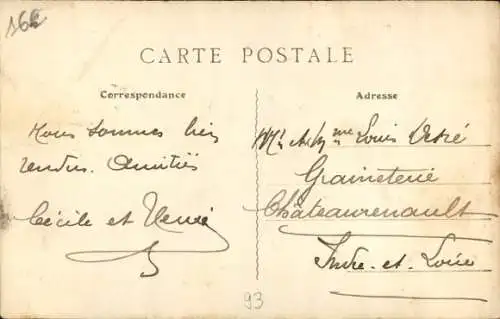 166
CARTE POSTALE
Correspondance
Nous sommes bien
rendus. Amitiés
Cécile et René
Adresse
Mr et Mme Louis
Graineterie
Châteaurenault
Indre-et-Loire
93